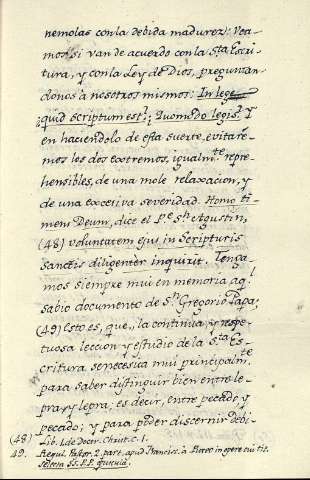 nemolas con la debida madurez: Vea-
mos si van de acuerdo con la S.ta Escri-
tura, y con la Ley de Dios, preguntan-
donos à nosotros mismos: In lege
quid scriptum est? Quomodo legis? Y
en haciendolo de esta suerte, evitare-
mos los dos extremos, igualm.te repre-
hensibles, de una mole relaxacion, y
de una excesiva severidad. Homo ti-
mens Deum, dice el P.e S.n Agustin,
(48) voluntatem ejus in Scripturis
sanctis diligenter inquirit. Tenga-
mos siempre mui en memoria aq.l
sabio documento de S.n Gregorio Papa;
(49) esto es, que, la continua, y respe-
tuosa leccion y estudio de la S.ta Es-
critura se necesita mui principalm.te
para saber distinguir bien entre le-
pra, y lepra; es decir, entre pecado y
pecado; y para poder discernir debi-
(48) Lib. 1. de Doctr. Christ. c. 1.
49. Regul. Pastor. 2. part. apud Francisc. à